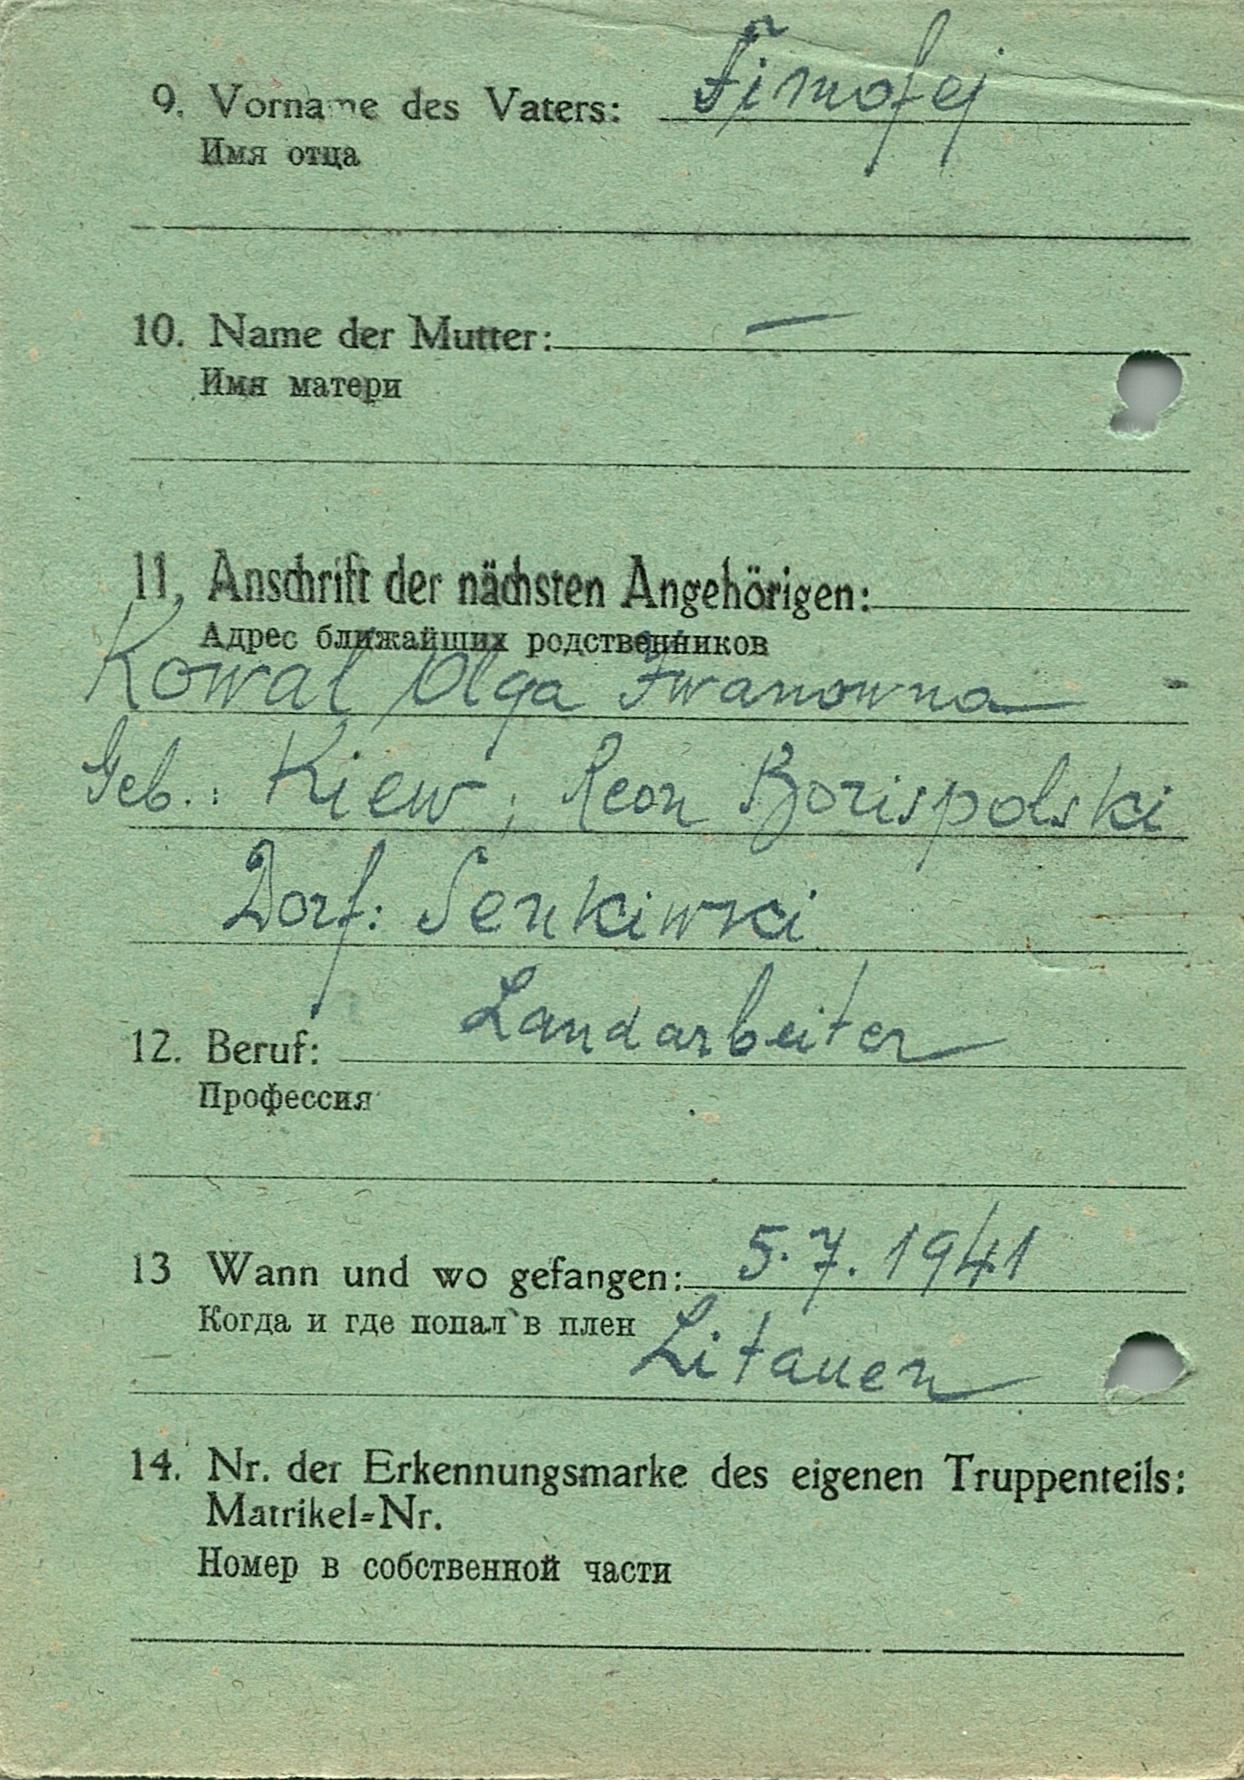 9. Vorname des Vaters: Timofej
Имя отца
10. Name der Mutter: —
Имя матери
11. Anschrift der nächsten Angehörigen:
Адрес ближайших родственников
Kowal Olga Iwanowna
Geb.: Kiew, Reon Borispolski
Dorf: Senkiwki
12. Beruf: Landarbeiter
Профессия
13 Wann und wo gefangen: 5.7.1941
Когда и где попал в плен
Litauen
14. Nr. der Erkennungsmarke des eigenen Truppenteils:
Matrikel=Nr.
Номер в собственной части